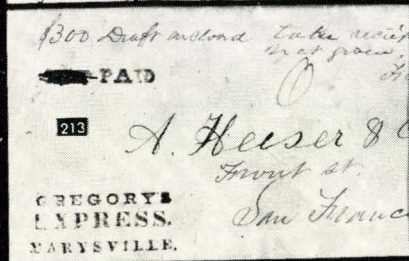 $300 Draft enclosed take
PAID
213
A. Heeser &
Front st.
San Franc
GREGORY'S
EXPRESS.
MARYSVILLE.